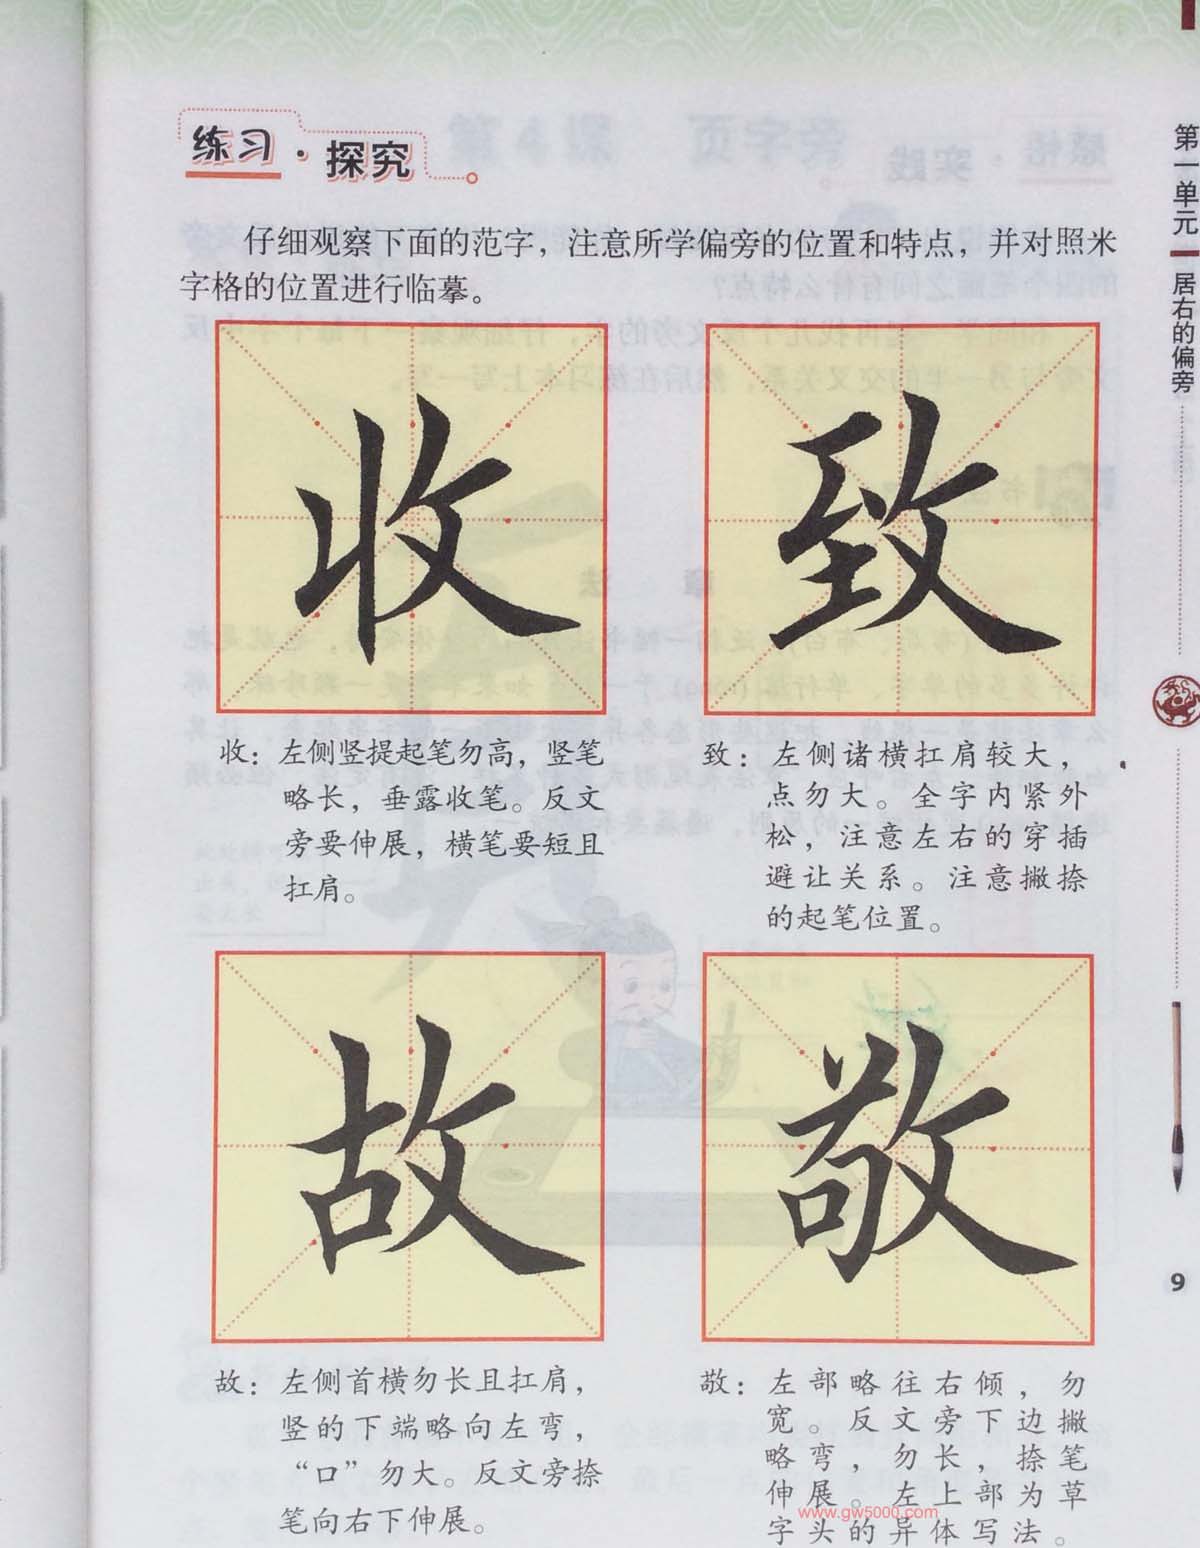 练习·探究
仔细观察下面的范字，注意所学偏旁的位置和特点，并对照米
字格的位置进行临摹。
收
致
收：左侧竖提起笔勿高，竖笔
略长，垂露收笔。反文
旁要伸展，横笔要短且
扛肩。
致：左侧诸横扛肩较大，
点勿大。全字内紧外
松，注意左右的穿插
避让关系。注意撇捺
的起笔位置。
故
敬
故：左侧首横勿长且扛肩，
竖的下端略向左弯，
“口”勿大。反文旁捺
笔向右下伸展。
敬：左部略往右倾，勿
宽。反文旁下边撇
略弯，勿长，捺笔
伸展。左上部为草
字头的异体写法。
www.gw5000.com
第一单元
居右的偏旁
9